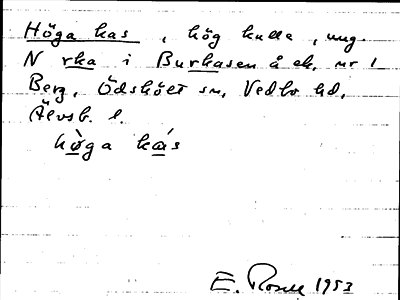 Höga kas, hög kulle, ung.
N rka i Burkasen å ek. nr 1
Berg, Ödskölt sn, Vedbo hd,
Älvsb. l.
hö̀ga kás
E. Rosell 1953